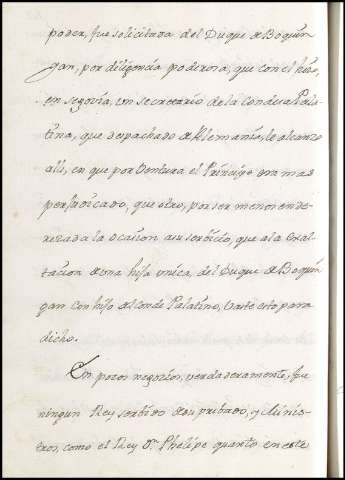 poder, fue solicitada del Duque de Boquin
gan, por diligencia poderosa, que con el hizo,
en segovia, un secretario de la Condesa Pala
tina, que despachado de Alemania, le alcanzo
alli, en que por ventura el Principe era mas
perjudicado, que otro, por ser menos ende
rezada la ocasion a su servicio, que a la exal
tacion de una hija unica, del Duque de Boquin
gan con hijo del conde Palatino, baste esto para
dicho.
En pocos negocios, verdaderamente, fue
ningun Rey servido de su pribado, y Minis
tros, como el Rey Dn. Phelipe quarto en este